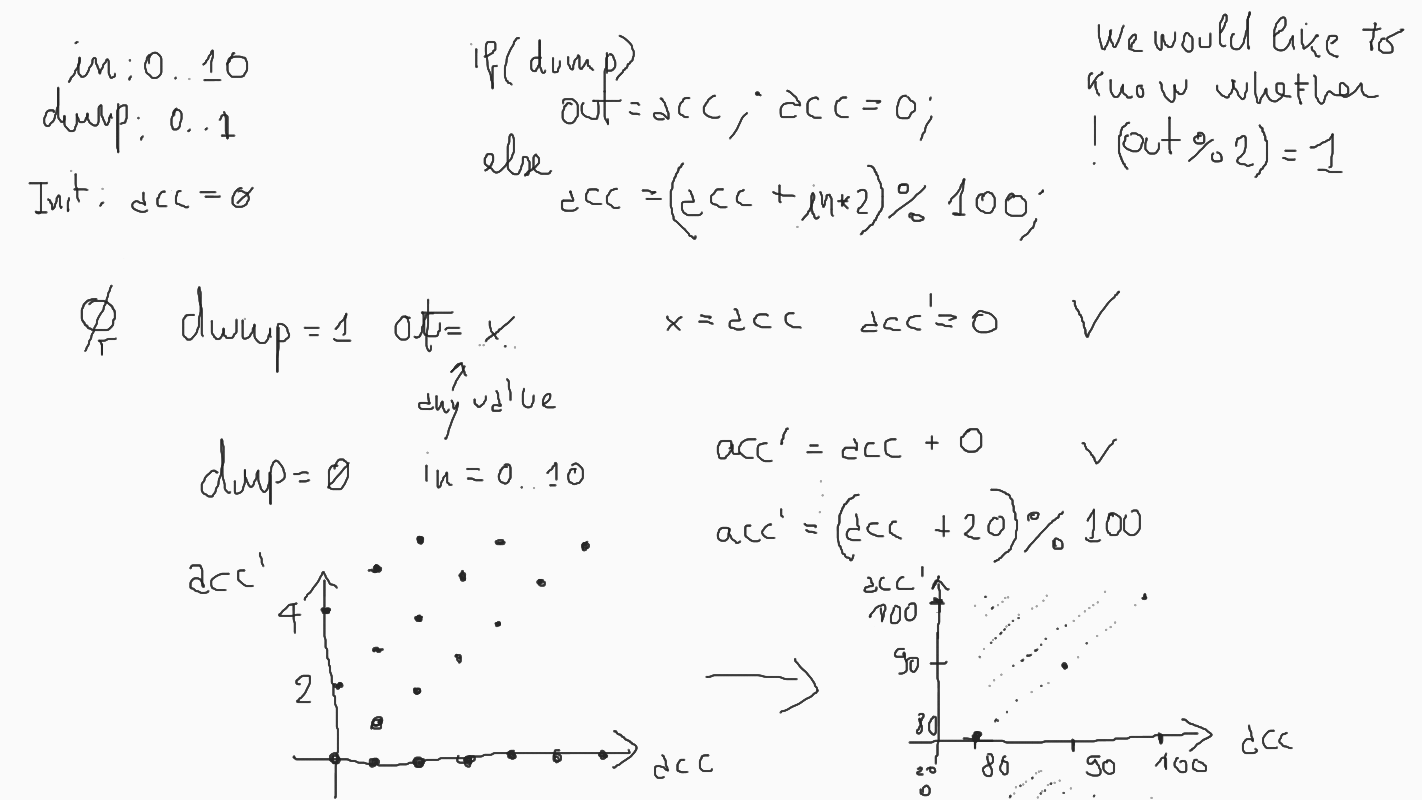 in: 0..10
dump: 0..1
Init: acc = 0
if(dump)
out = acc; acc = 0;
else
acc = (acc + in*2) % 100;
We would like to
know whether
!(out % 2) = 1
dump = 1 out = x x = acc acc' = 0 ✓
any value
dump = 0 in = 0..10 acc' = acc + 0 ✓
acc' = (acc + 20) % 100
acc'
4
2
acc
acc'
100
90
80
20
0
80 90 100
acc